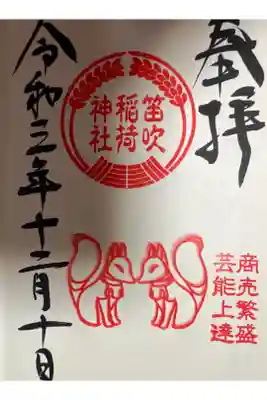 奉拝
笛吹
稲荷
神社
商売繁盛
芸能上達
令和三年十二月十日